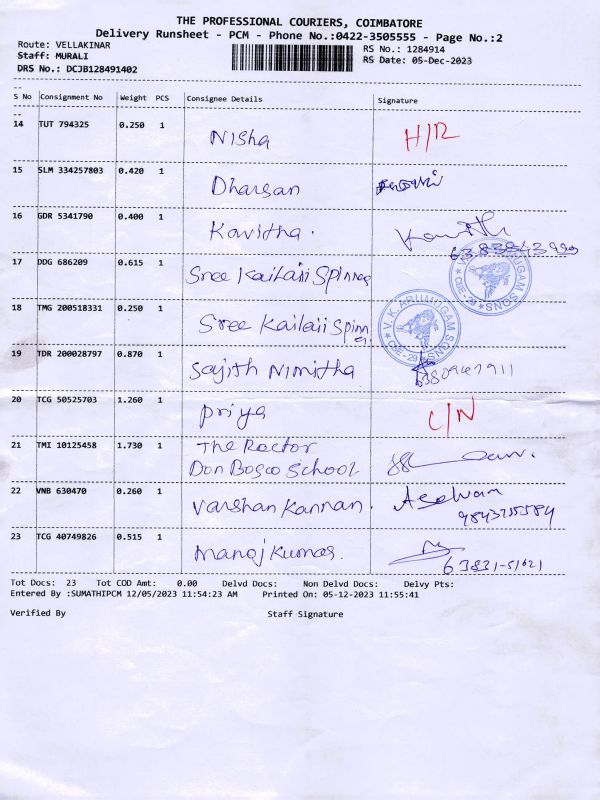 THE PROFESSIONAL COURIERS, COIMBATORE
Delivery Runsheet - PCM - Phone No.:0422-3505555 - Page No.:2
Route: VELLAKINAR RS No.: 1284914
Staff: MURALI RS Date: 05-Dec-2023
DRS No.: DCJB128491402
S No Consignment No Weight PCS Consignee Details Signature
14 TUT 794325 0.250 1 Nisha H/R
15 SLM 334257803 0.420 1 Dharsan
16 GDR 5341790 0.400 1 Kavitha.
17 DDG 686209 0.615 1 Sree Kailaii Spinner
V.K. ARUMUGAM SONS
CBE-29
18 TMG 200518331 0.250 1 Sree Kailaii Spinn
er
V.K. ARUMUGAM SONS
CBE-29
19 TDR 200028797 0.870 1 Sajith Nimitha
20 TCG 50525703 1.260 1 priya C/N
21 TMI 10125458 1.730 1 The Rector
Don Bosco School
22 VNB 630470 0.260 1 Varshan Kannan.
23 TCG 40749826 0.515 1 Manoj Kumar.
63831-51621
Tot Docs: 23 Tot COD Amt: 0.00 Delvd Docs: Non Delvd Docs: Delvy Pts:
Entered By :SUMATHIPCM 12/05/2023 11:54:23 AM Printed On: 05-12-2023 11:55:41
Verified By Staff Signature